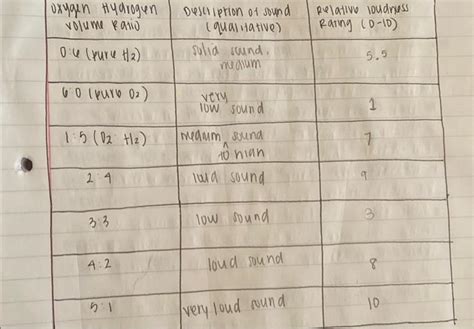 Oxygen Hydrogen Description of sound Relative loudness
Volume Ratio (qualitative) Rating (0-10)
0:6 (pure H2) solid sound. medium 5.5
6:0 (pure O2) very low sound 1
1:5 (O2 H2) medium sound to high 7
2:4 loud sound 9
3:3 low sound 3
4:2 loud sound 8
5:1 very loud sound 10